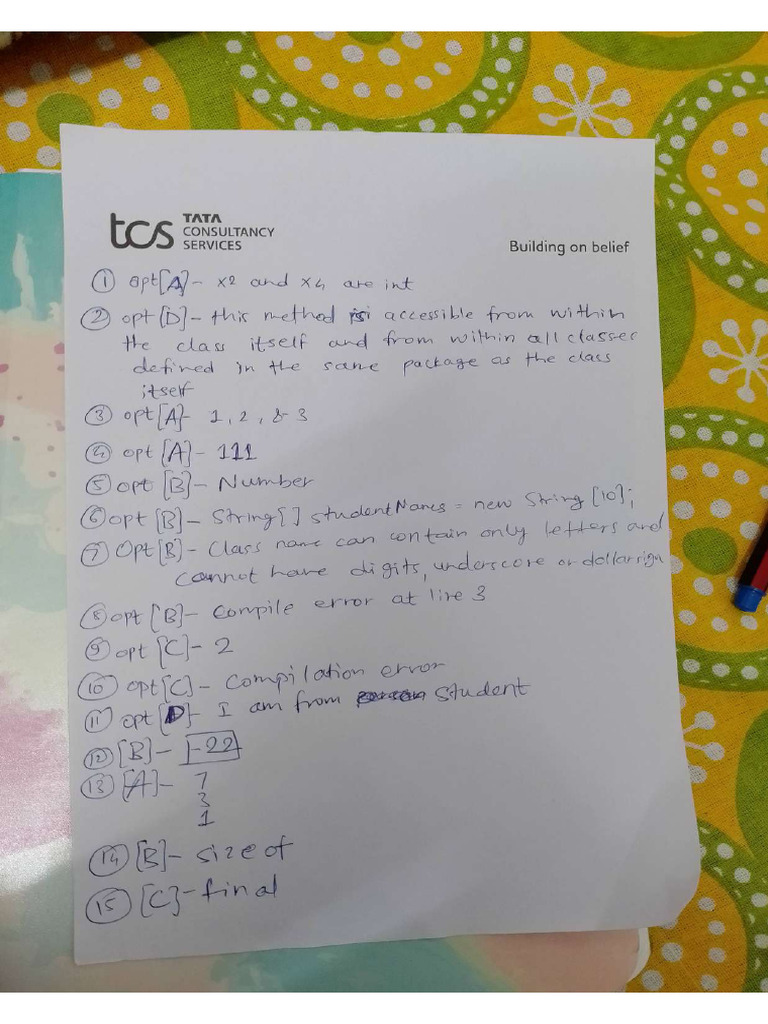 tcs TATA
CONSULTANCY
SERVICES
Building on belief
① opt[A] - x2 and x4 are int
② opt [D] - this method is accessible from within
the class itself and from within all classes
defined in the same package as the class
itself
③ opt[A] - 1, 2, & 3
④ opt [A] - 111
⑤ opt [B] - Number
⑥ opt [B] - String[] studentNames = new String [10];
⑦ Opt [B] - Class name can contain only letters and
cannot have digits, underscore or dollar sign
⑧ opt [B] - Compile error at line 3
⑨ opt [C] - 2
⑩ opt [C] - Compilation error
⑪ opt [D] - I am from student
⑫ [B] - -22
⑬ [A] - 7
3
1
⑭ [B] - size of
⑮ [C] - final